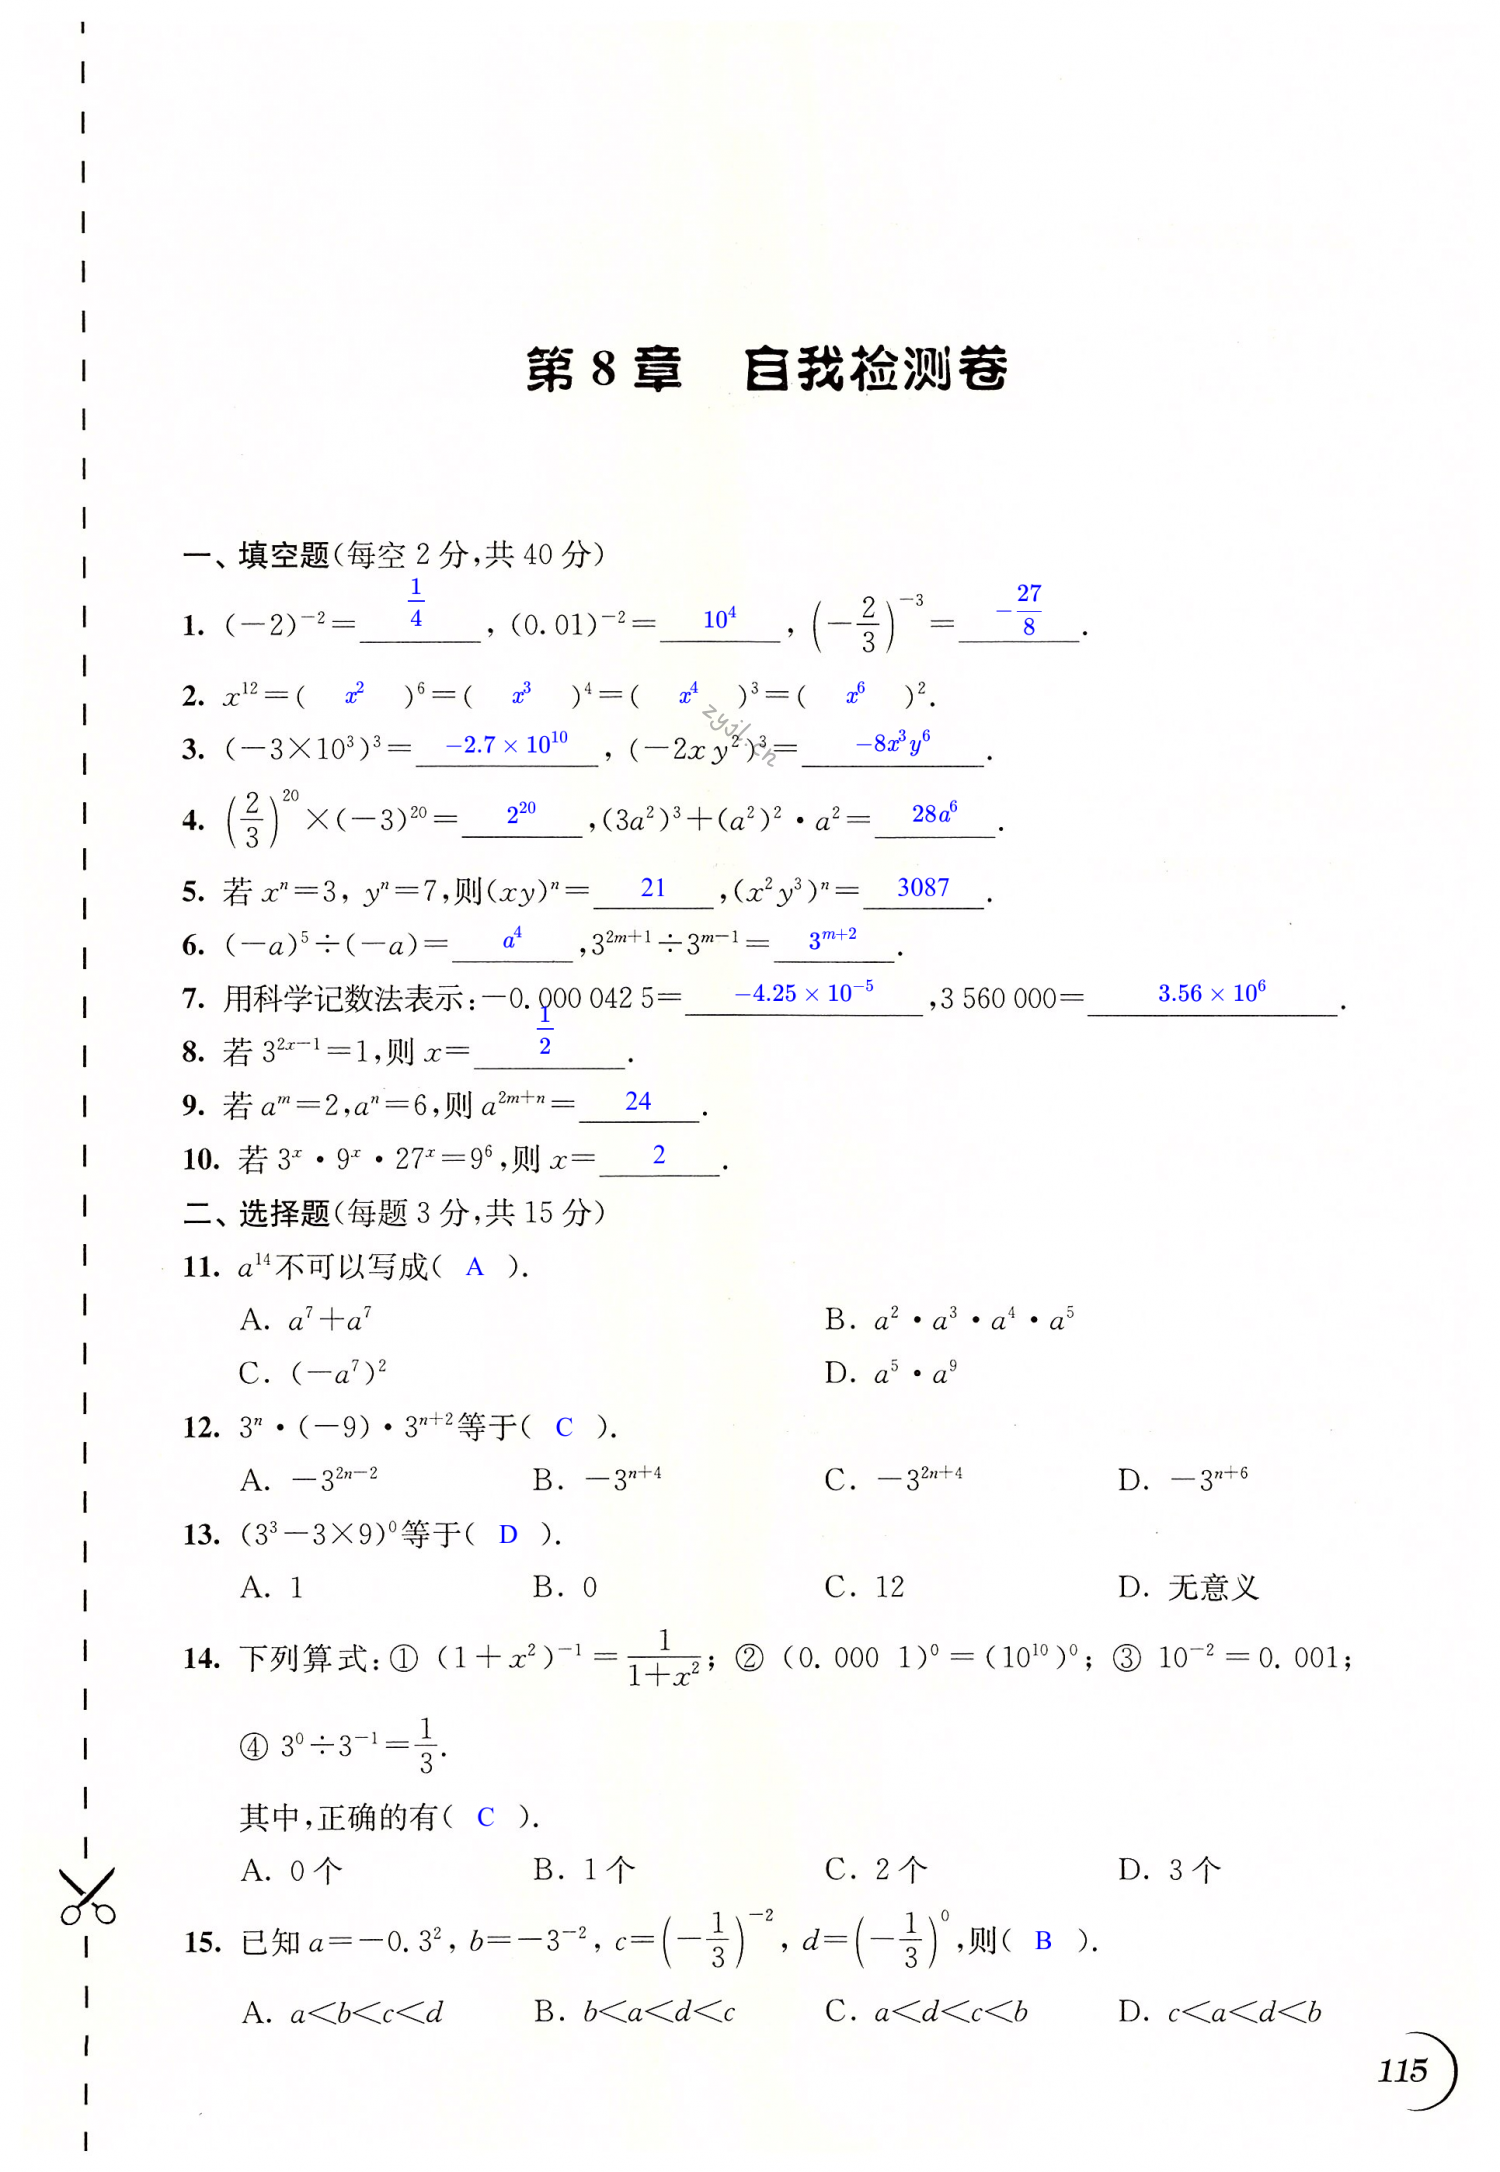 第 8 章　自我检测卷
一、填空题(每空 2 分,共 40 分)
1. (-2)⁻²= 1/4 , (0.01)⁻²= 10⁴ , (-2/3)⁻³= -27/8 .
2. x¹²=( x² )⁶=( x³ )⁴=( x⁴ )³=( x⁶ )².
3. (-3×10³)³= -2.7×10¹⁰ , (-2xy²)³= -8x³y⁶ .
4. (2/3)²⁰×(-3)²⁰= 2²⁰ ,(3a²)³+(a²)²·a²= 28a⁶ .
5. 若 xⁿ=3, yⁿ=7,则(xy)ⁿ= 21 ,(x²y³)ⁿ= 3087 .
6. (-a)⁵÷(-a)= a⁴ ,3²ᵐ⁺¹÷3ᵐ⁻¹= 3ᵐ⁺² .
7. 用科学记数法表示:-0.000 042 5= -4.25×10⁻⁵ ,3 560 000= 3.56×10⁶ .
8. 若 3²ˣ⁻¹=1,则 x= 1/2 .
9. 若 aᵐ=2,aⁿ=6,则 a²ᵐ⁺ⁿ= 24 .
10. 若 3ˣ·9ˣ·27ˣ=9⁶,则 x= 2 .
二、选择题(每题 3 分,共 15 分)
11. a¹⁴不可以写成( A ).
A. a⁷+a⁷ B. a²·a³·a⁴·a⁵
C. (-a⁷)² D. a⁵·a⁹
12. 3ⁿ·(-9)·3ⁿ⁺²等于( C ).
A. -3²ⁿ⁻² B. -3ⁿ⁺⁴ C. -3²ⁿ⁺⁴ D. -3ⁿ⁺⁶
13. (3³-3×9)⁰等于( D ).
A. 1 B. 0 C. 12 D. 无意义
14. 下列算式:① (1+x²)⁻¹=1/(1+x²); ② (0.000 1)⁰=(10¹⁰)⁰; ③ 10⁻²=0.001;
④ 3⁰÷3⁻¹=1/3.
其中,正确的有( C ).
A. 0 个 B. 1 个 C. 2 个 D. 3 个
15. 已知 a=-0.3², b=-3⁻², c=(-1/3)⁻², d=(-1/3)⁰,则( B ).
A. a<b<c<d B. b<a<d<c C. a<d<c<b D. c<a<d<b
115
zyjl.cn